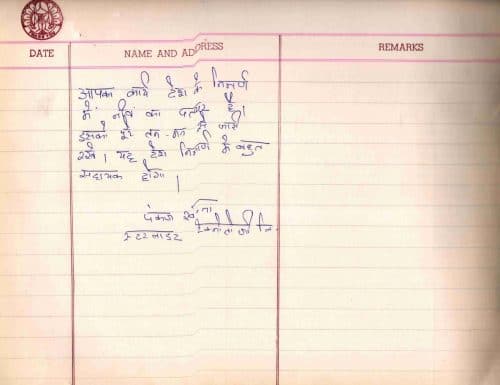 DATE NAME AND ADDRESS REMARKS
आपका कार्य देश के निर्माण
में नींव का पत्थर है।
इसको पूरे तन-मन से जारी
रखें। यह देश निर्माण में बहुत
सहायक होगा।
पंकज
स्टरलाइट टेक्नोलॉजी लि.